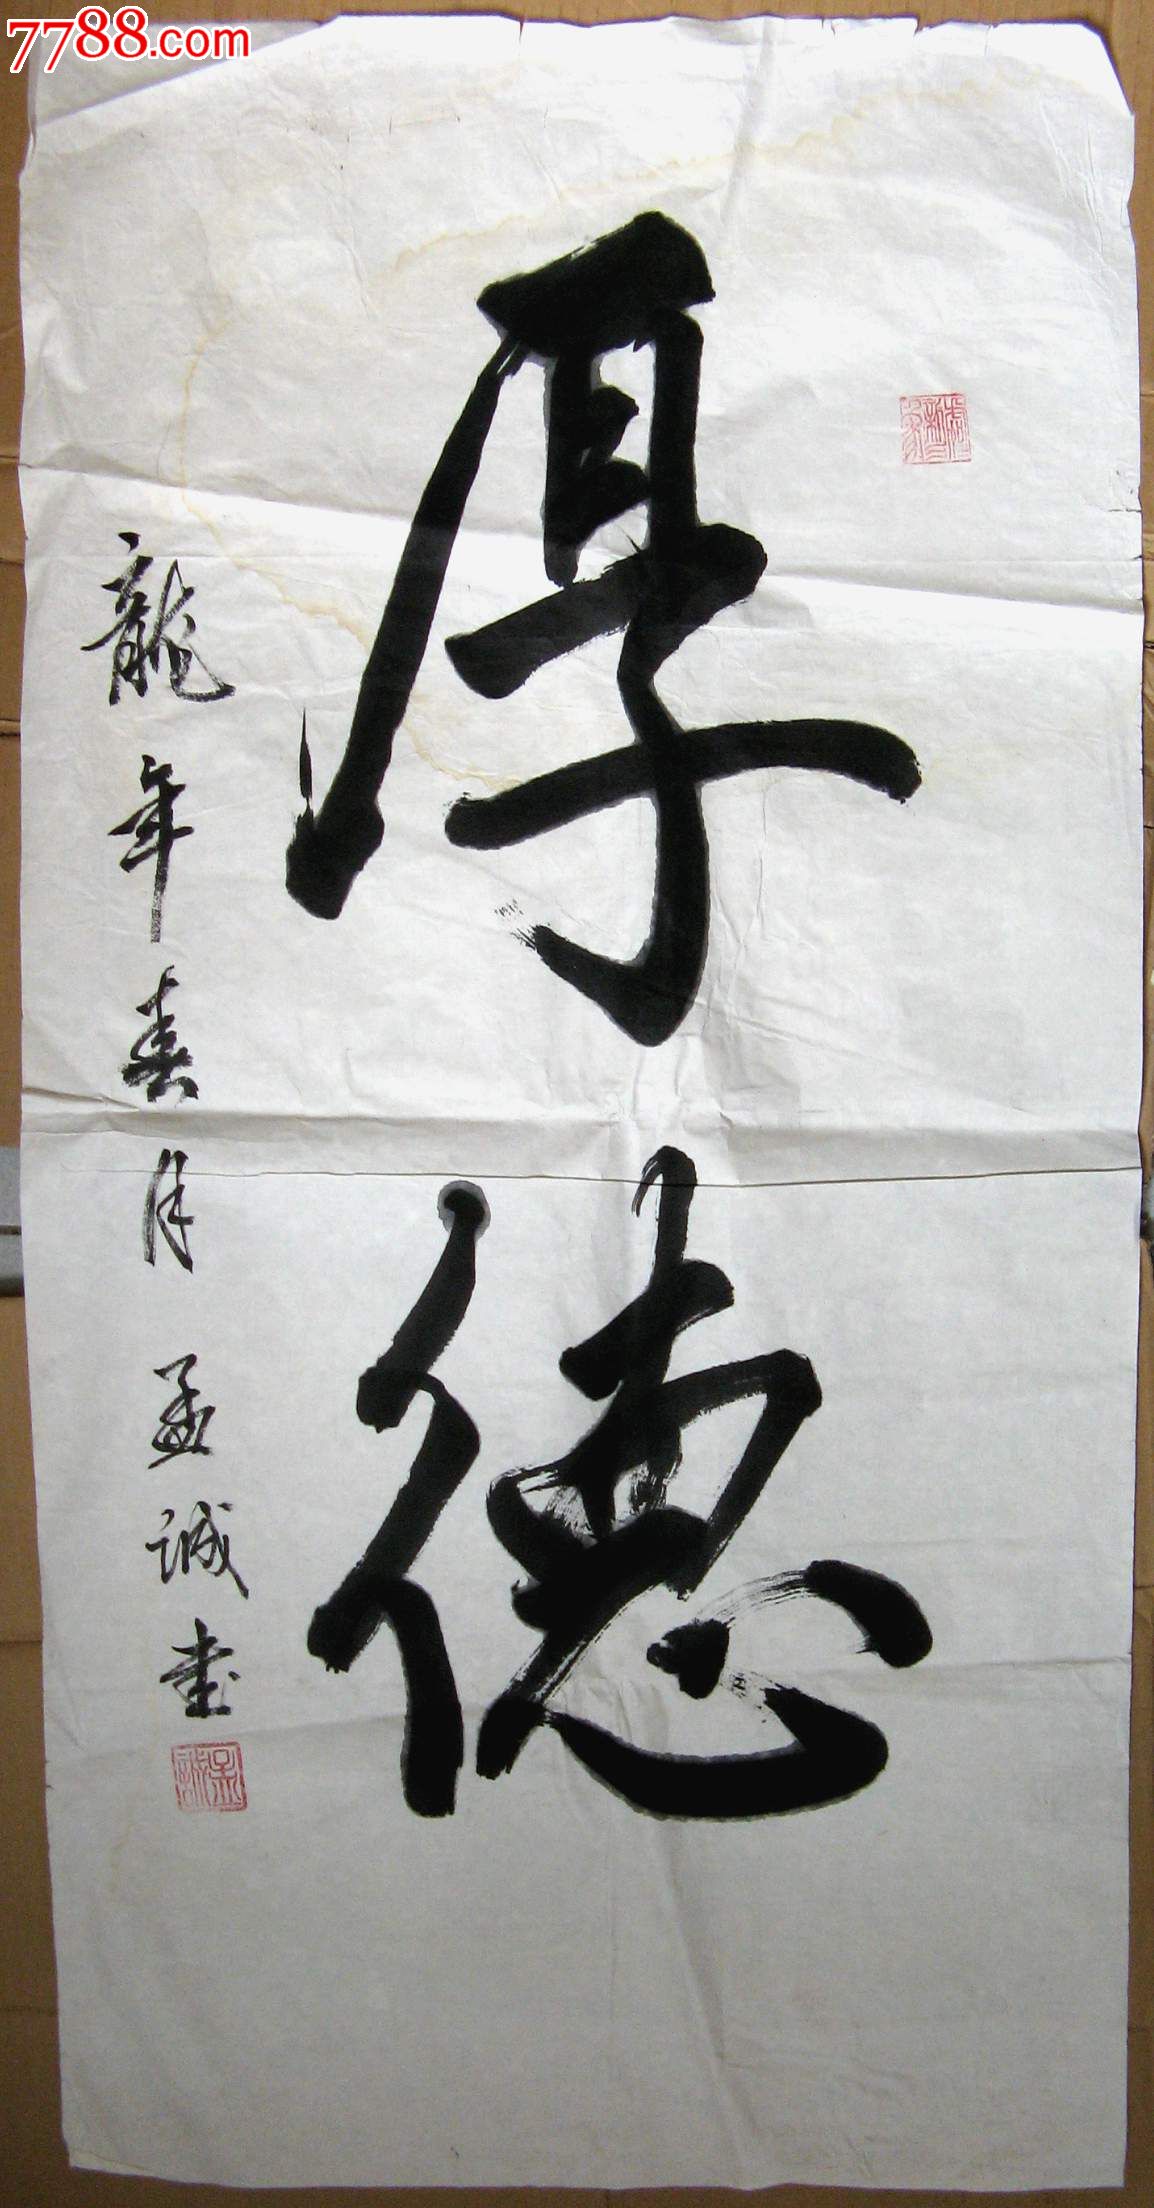 7788.com
厚德
龍年春月孟誠書
孟誠